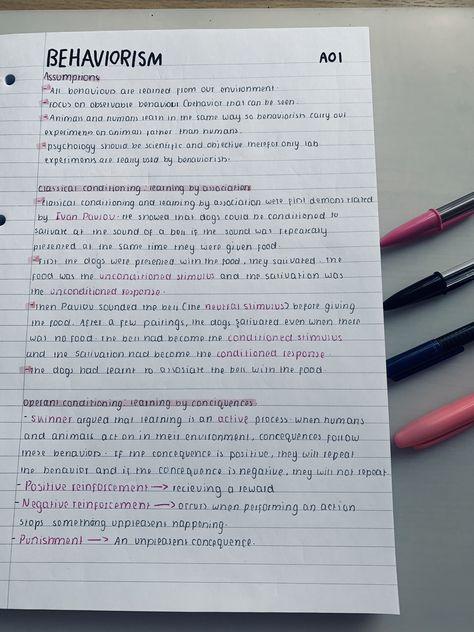 BEHAVIORISM AO1
Assumptions
- All behaviours are learned from our environment.
- Focus on observable behaviour (behavior that can be seen.
- Animan and humans learn in the same way so behaviorism carry out
experiments on animal rather than humans.
- Psychology should be scientific and objective therefor only lab
experiments are really used by behaviorism.
Classical conditioning: learning by association
- Classical conditioning and learning by association were first demonstrated
by Ivan Pavlov. He showed that dogs could be conditioned to
salivate at the sound of a bell if the sound was repeatedly
presented at the same time they were given food.
- First the dogs were presented with the food, they salivated. The
food was the unconditioned stimulus and the salivation was
the unconditioned response.
- Then Pavlov sounded the bell (the neutral stimulus) before giving
the food. After a few pairings, the dogs salivated even when there
was no food. The bell had become the conditioned stimulus
and the salivation had become the conditioned response.
- The dogs had learnt to assosiate the bell with the food.
Operant conditioning: learning by conciquences
- Skinner argued that learning is an active process. When humans
and animals act on in their environment, concequences follow
these behaviors. If the concequence is positive, they will repeat
the behavior and if the concequence is negative, they will not repeat
- Positive reinforcement —> recieving a reward
- Negative reinforcement —> occurs when performing an action
stops something unpleasent happening.
- Punishment —> An unpleasent concequence.